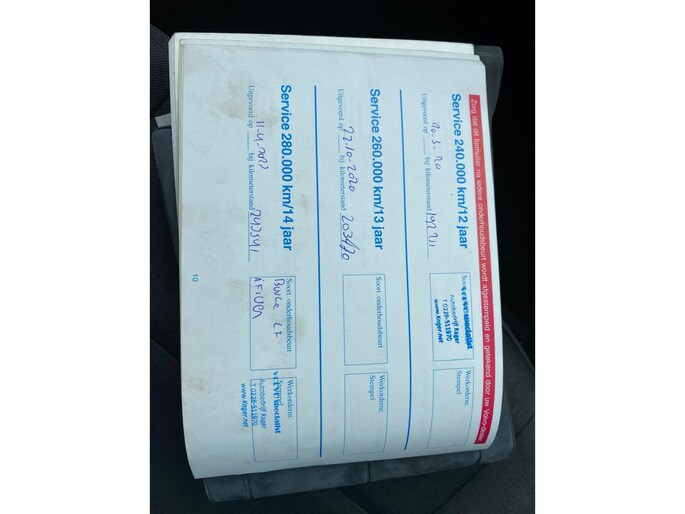 Zorg dat dit formulier na iedere onderhoudsbeurt wordt afgestempeld en getekend door uw Volvo-dealer
Service 240.000 km/12 jaar
Uitgevoerd op 10-3-20 bij kilometerstand
Soort
specialist
Autobedrijf Kager
T 0228-511970
www.Kager.net
Werkordernr.
Stempel
Service 260.000 km/13 jaar
Uitgevoerd op 22-10-2020 bij kilometerstand 203470
Soort onderhoudsbeurt
Werkordernr.
Stempel
Service 280.000 km/14 jaar
Uitgevoerd op 11-4-2022 bij kilometerstand
Soort onderhoudsbeurt
Werkordernr.
specialist
Autobedrijf Kager
T 0228-511970
www.Kager.net
10